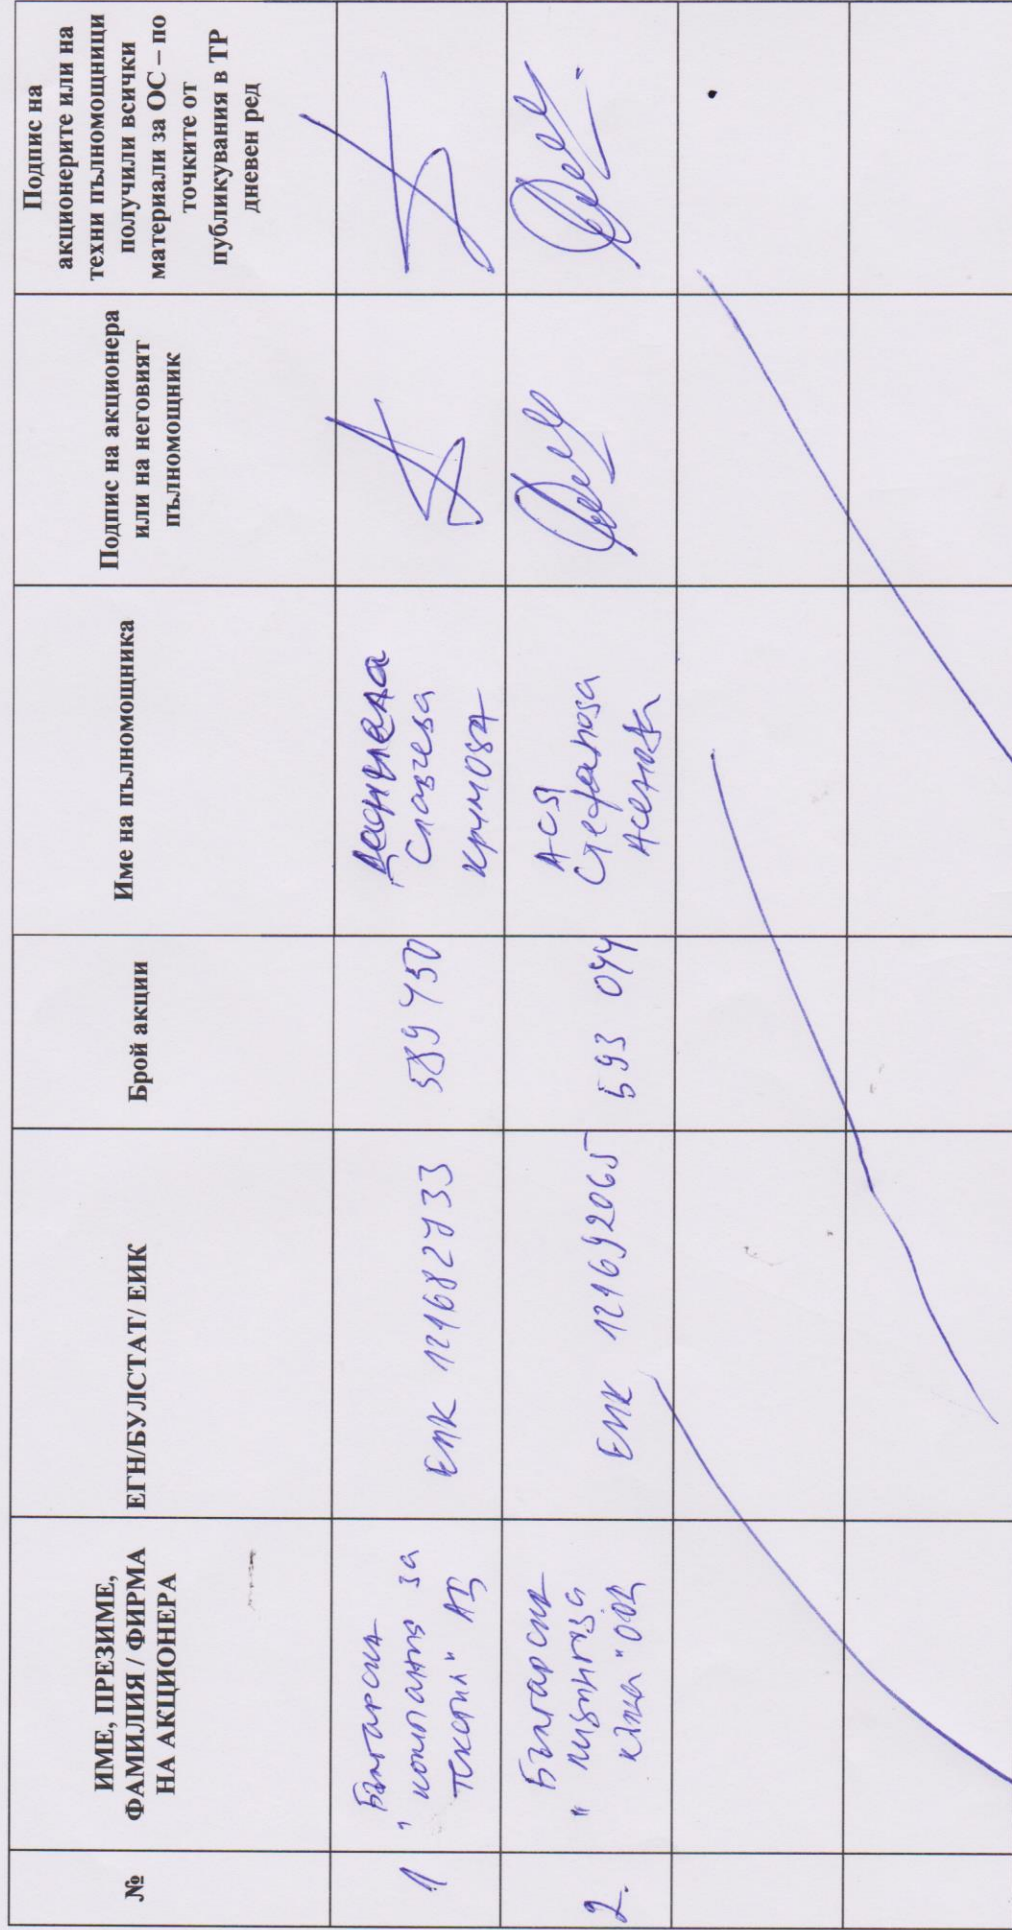 №
ИМЕ, ПРЕЗИМЕ,
ФАМИЛИЯ / ФИРМА
НА АКЦИОНЕРА
ЕГН/БУЛСТАТ/ ЕИК
Брой акции
Име на пълномощника
Подпис на акционера
или на неговият
пълномощник
Подпис на
акционерите или на
техни пълномощници
получили всички
материали за ОС – по
точките от
публикувания в ТР
дневен ред
1
"Българска
компания за
текстил" АД
ЕИК 121682733
589 750
Даниела
Славчева
Крумова
2.
Българска
"
ООД
ЕИК 121692065
593 044
АСЯ
Стефанова
Асенова